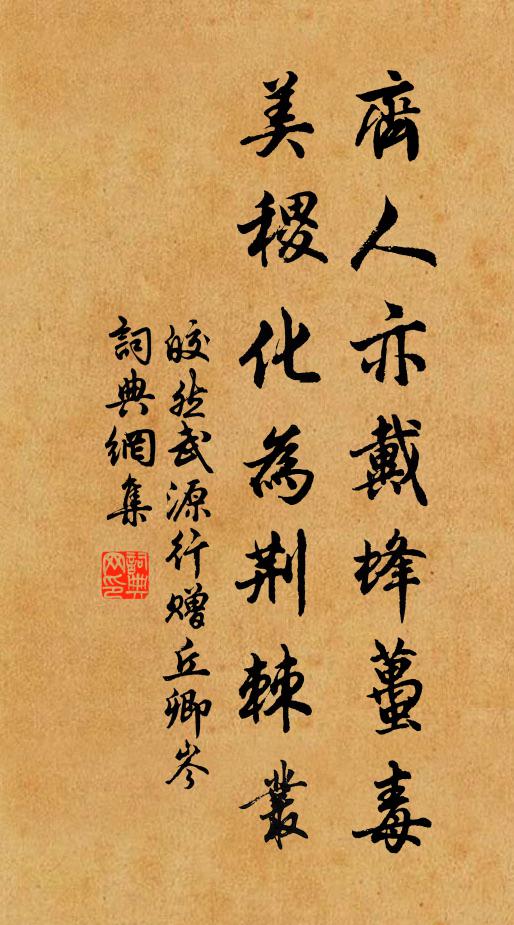 齊人亦戴蜂蠆毒
美稷化為荆棘叢
皎然武源行赠丘卿岑
詞典網集
詞典
网印